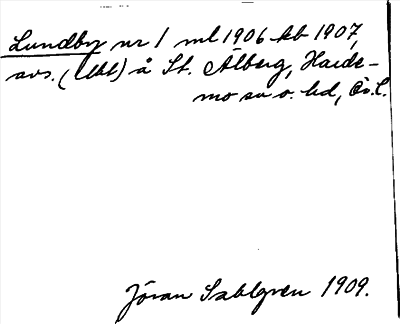 Lundby nr 1 ml 1906 kb 1907,
avs. (lbl) å St. Ålberg, Harde-
mo sn o. hd, Ör.l.
Jöran Sahlgren 1909.